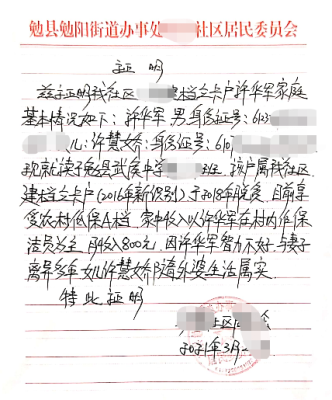 勉县勉阳街道办事处 社区居民委员会
证 明
兹证明我社区 建档立卡户许华军家庭
基本情况如下：许华军 男 身份证号：612
儿：许慧娇：身份证号：610
现就读于勉县武侯中学 班 该户属我社区
建档立卡户（2016年新识别）于2018年脱贫 目前享
受农村低保A档 家中收入以许华军在村内作保
洁员为主 月收入800元 因许华军智力不好 与妻子
离异多年 女儿许慧娇随外婆生活属实
特此证明
社区
2021年3月